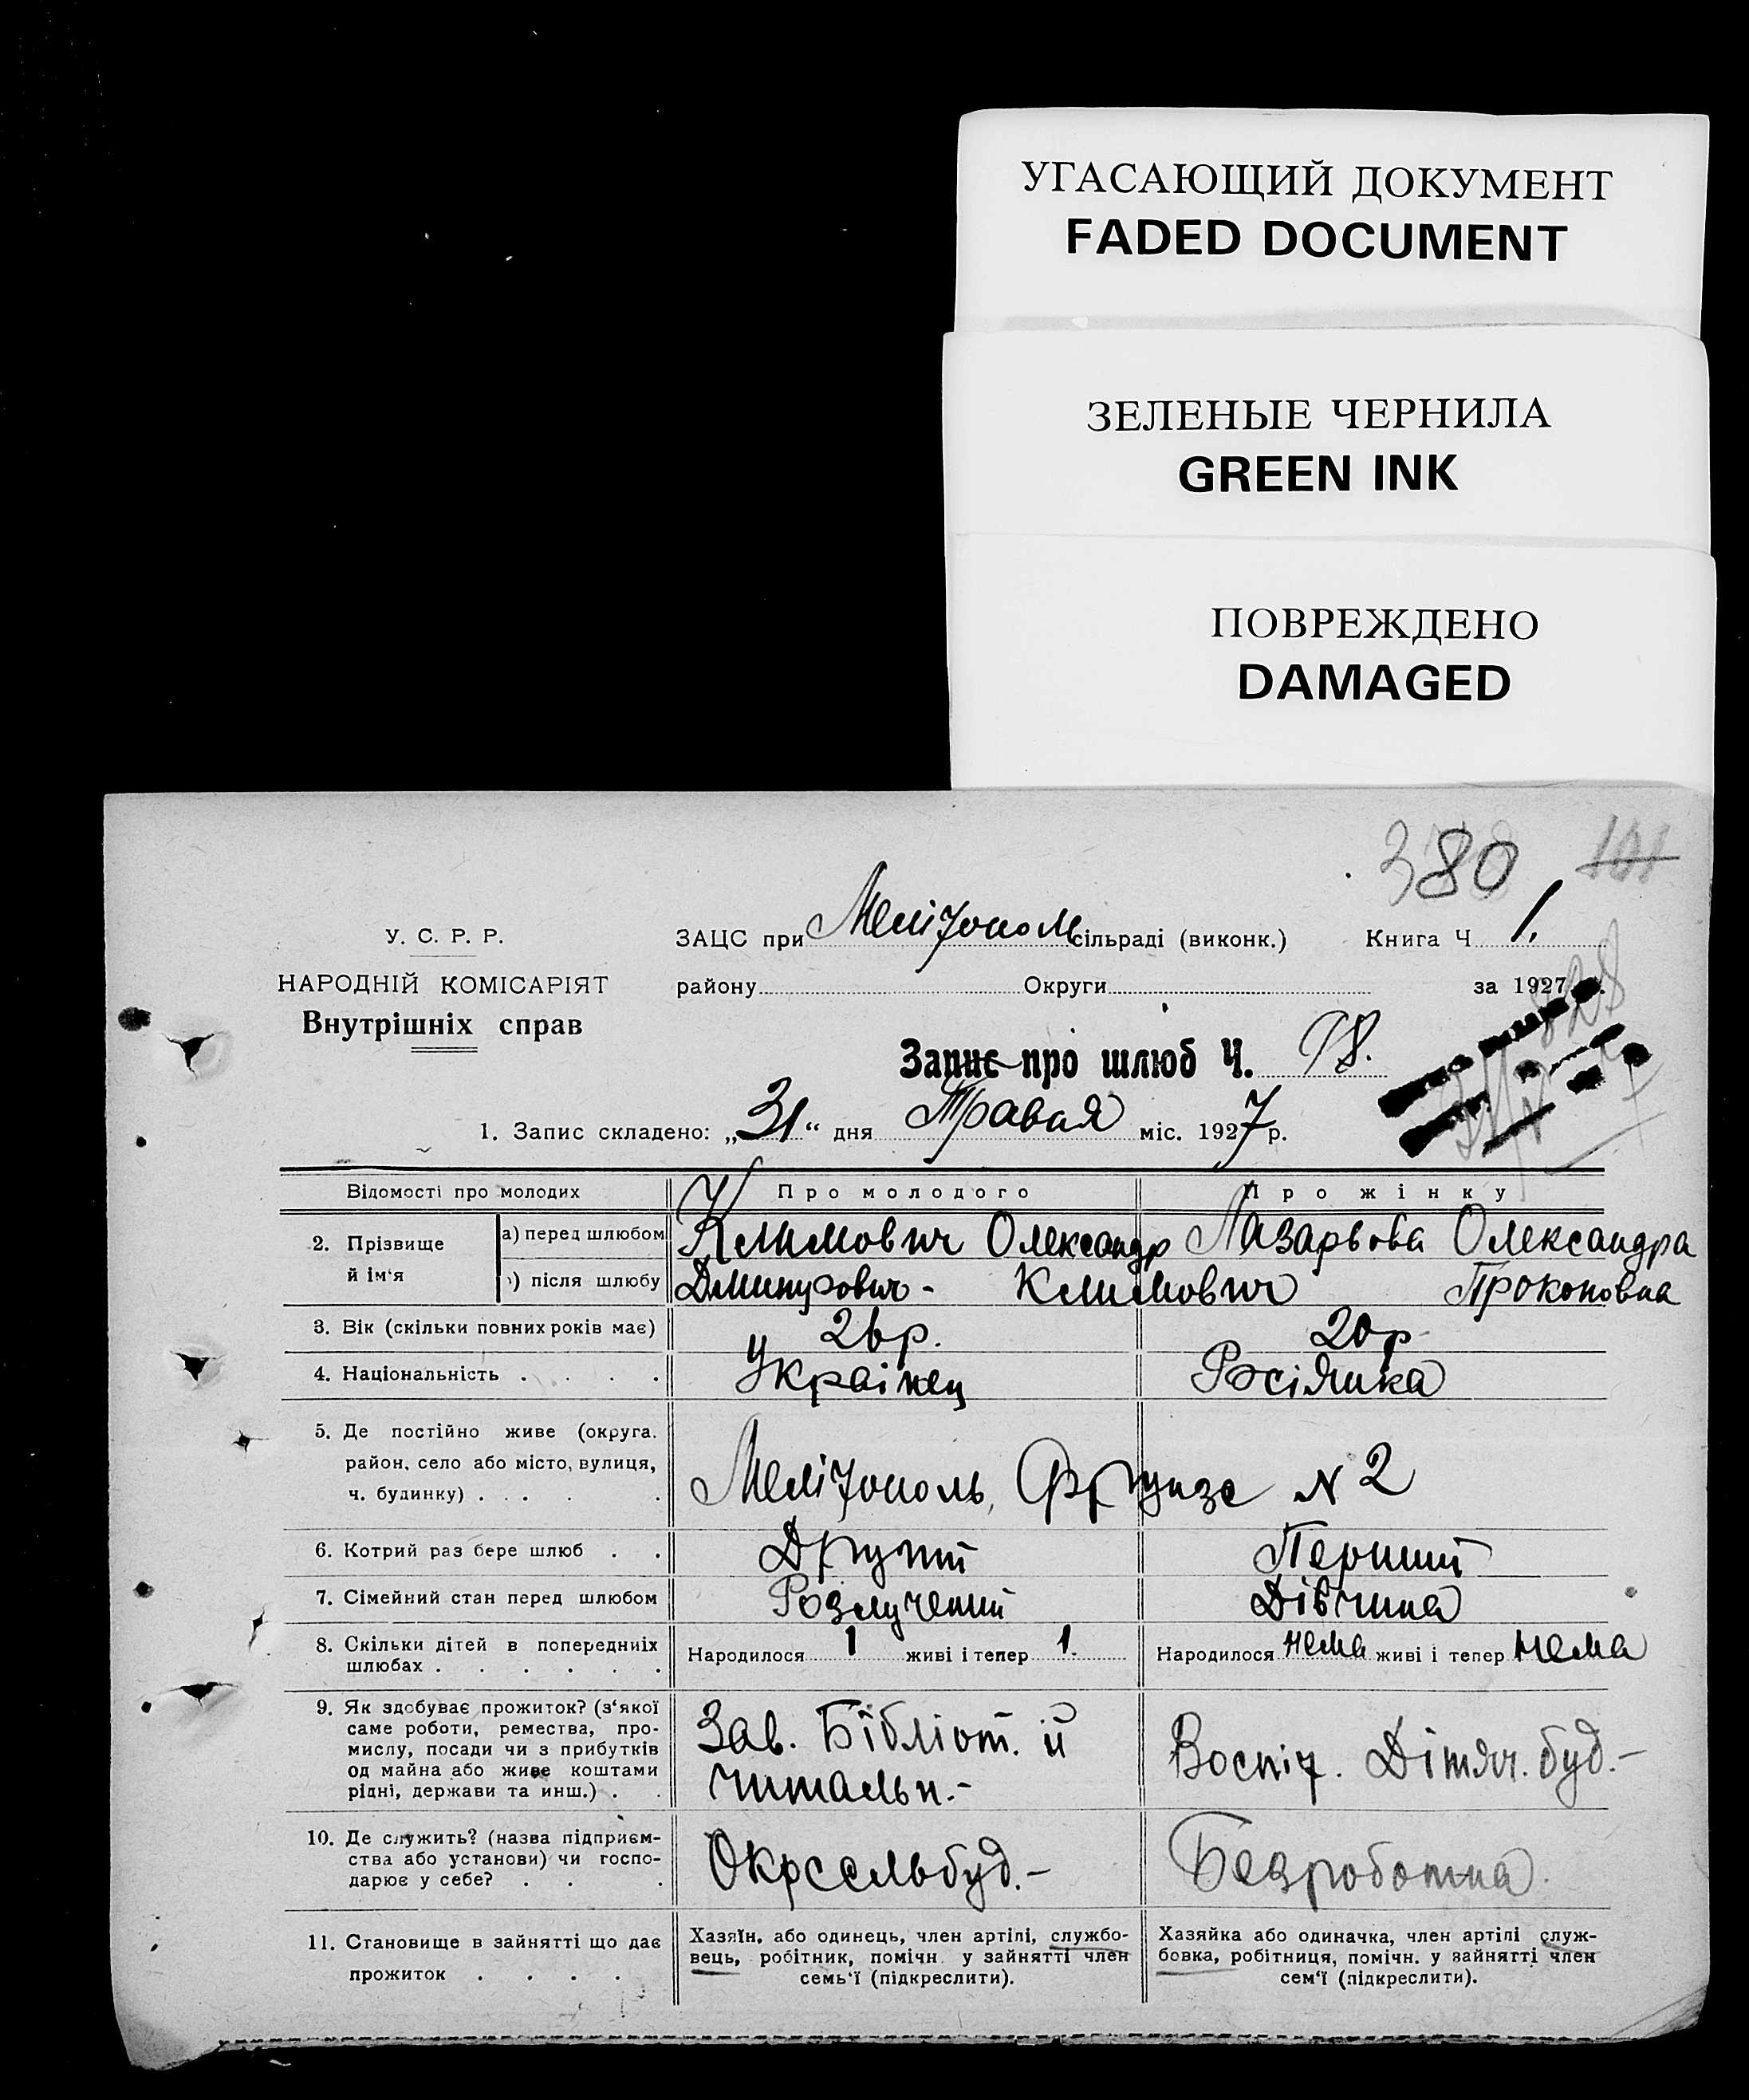 УГАСАЮЩИЙ ДОКУМЕНТ
FADED DOCUMENT
ЗЕЛЕНЫЕ ЧЕРНИЛА
GREEN INK
ПОВРЕЖДЕНО
DAMAGED
380 101
У. С. Р. Р.
НАРОДНІЙ КОМІСАРІЯТ
Внутрішніх справ
ЗАЦС при Мелітополь сільраді (виконк.) Книга Ч 1.
району Округи за 1927
Запис про шлюб Ч. 98.
1. Запис складено: „31“ дня Травня міс. 1927 р.
Відомості про молодих Про молодого Про жінку
2. Прізвище й ім‘я
а) перед шлюбом Климович Олександр Лазарьова Олександра
б) після шлюбу Дмитрович - Климович Прокоповна
3. Вік (скільки повних років має) 26 р. 20 р
4. Національність . . . . Украінец Росіянка
5. Де постійно живе (округа.
район, село або місто, вулиця,
ч. будинку) . . . . . Мелітополь, Фрунзе N 2
6. Котрий раз бере шлюб . . Другий Перший
7. Сімейний стан перед шлюбом Розлучений Дівчина
8. Скільки дітей в попередніх
шлюбах . . . . . . Народилося 1 живі і тепер 1. Народилося нема живі і тепер нема
9. Як здобуває прожиток? (з‘якої
саме роботи, ремества, про-
мислу, посади чи з прибутків
од майна або живе коштами
рідні, держави та инш.) . .
Зав. Бібліот. й
читальн.-
Воспіт. Дітяч. буд.-
10. Де служить? (назва підприєм-
ства або установи) чи госпо-
дарює у себе? . . .
Окрсельбуд.-
Безроботна.
11. Становище в зайнятті що дає
прожиток . . . .
Хазяїн, або одинець, член артілі, службо-
вець, робітник, помічн. у зайнятті член
семь‘ї (підкреслити).
Хазяйка або одиначка, член артілі служ-
бовка, робітниця, помічн. у зайнятті член
сем‘ї (підкреслити).